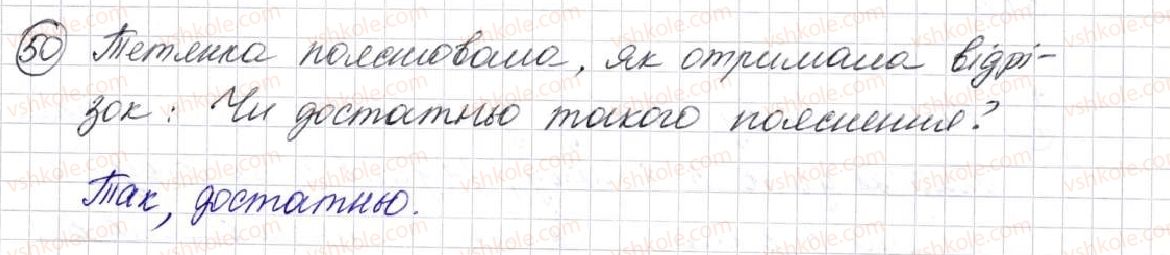 50 Тетянка пояснювала, як отримала відрі-
зок: Чи достатньо такого пояснення?
Так, достатньо.